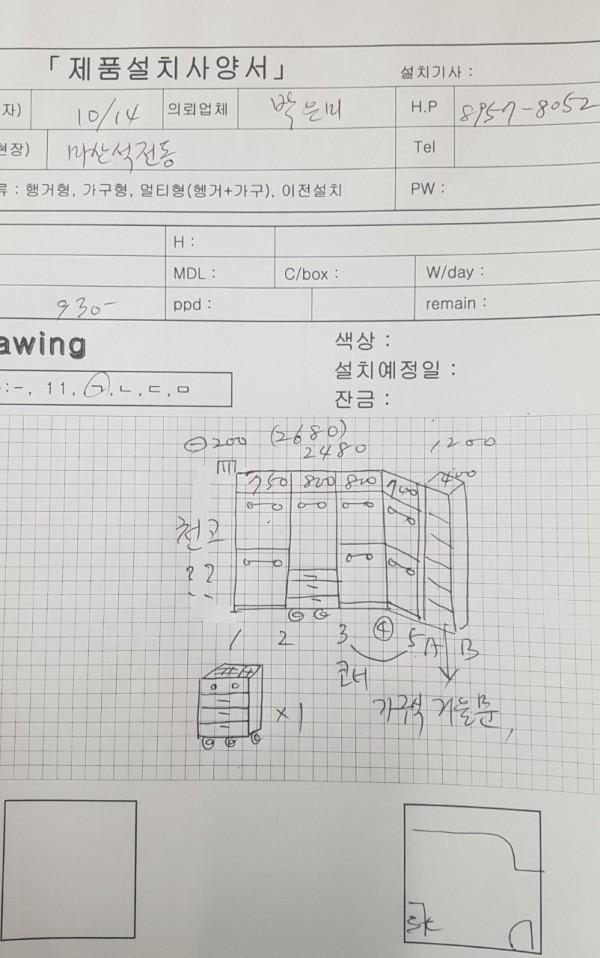 「제품설치사양서」
설치기사 :
자) 10/14 의뢰업체 박은미 H.P 8957-8052
현장) 마산석전동 Tel
류 : 행거형, 가구형, 멀티형(헹거+가구), 이전설치 PW :
H :
MDL : C/box : W/day :
930- ppd : remain :
awing
색상 :
:-, 11, ㄱ, ㄴ, ㄷ, ㅁ
설치예정일 :
잔금 :
⊖200 (2680) 1200
2480
750 800 800 700 400
천고
??
1 2 3 ④ 5 A B
코너
×1